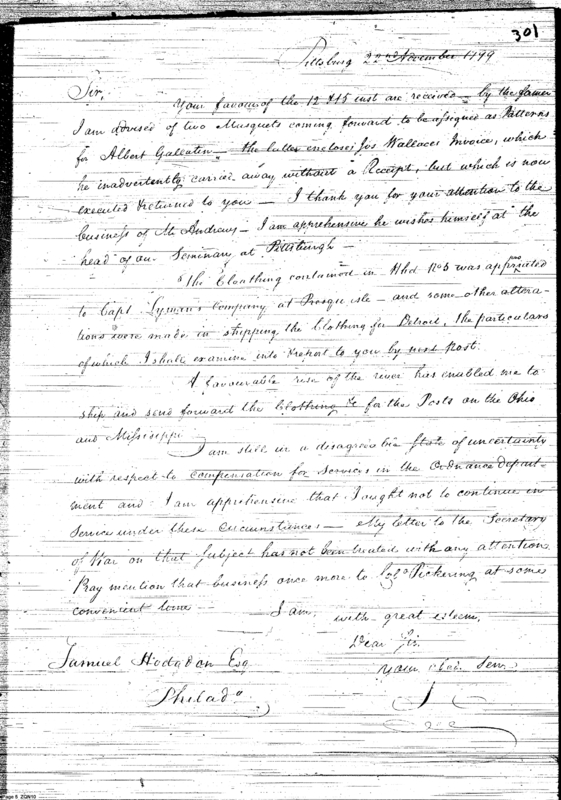 301
Pittsburg 22nd November 1799
Sir,
Your favours of the 12 & 15 inst are received – by the former
I am advised of two Musquets coming forward to be assigned as Patterns
for Albert Gallatin – the latter encloses Jos Wallaces Invoice, which
he inadvertently carried away without a Receipt, but which is now
executed & returned to you – I thank you for your attention to the
business of Mr Andrews – I am apprehensive he wishes himself at the
head of our Seminary at Pittsburgh –
The Cloathing contained in Hhd No 5 was appropriated
to Capt Lymans Company at Presqu isle – and some other altera-
tions were made in shipping the Clothing for Detroit, the particulars
of which I shall examine into & report to you by next Post.
A favourable rise of the river has enabled me to
ship and send forward the Clothing &c for the Posts on the Ohio
and Mississippi
I am still in a disagreeable State of uncertainty
with respect to compensation for Services in the Ordnance Depart-
ment and I am apprehensive that I ought not to continue in
Service under these Circumstances – My letter to the Secretary
of War on that Subject has not been treated with any attention
Pray mention that business once more to Colo Pickering at some
convenient time –
I am,
with great esteem,
Dear Sir
Your obed. Serv.
Samuel Hodgdon Esq
Philada
J C
Page 5